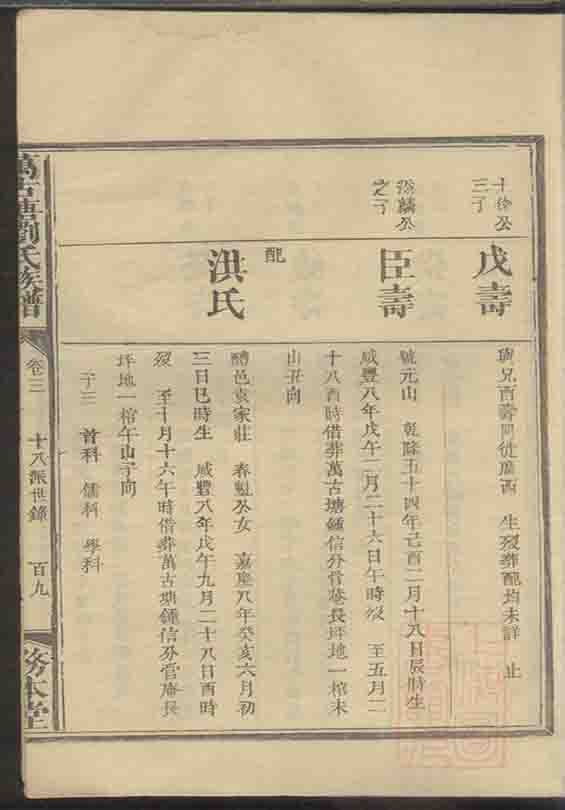 戊壽
三子
與兄酉壽同徙廣西 生歿葬配均未詳 止
臣壽
麟公
之子
號元山 乾隆五十四年己酉二月十八日辰時生
咸豐八年戊午二月二十六日午時歿 至五月二
十八酉時借葬萬古塘鍾信分骨菴長坪地一棺未
山丑向
配
洪氏
醴邑袁家莊 春魁公女 嘉慶八年癸亥六月初
三日巳時生 咸豐八年戊午九月二十八日酉時
歿 至十月十六午時借葬萬古塘鍾信分骨菴長
坪地一棺午山子向
子三 首科 儒科 學科
萬古塘劉氏族譜
卷三
十八派世錄
百九
務本堂